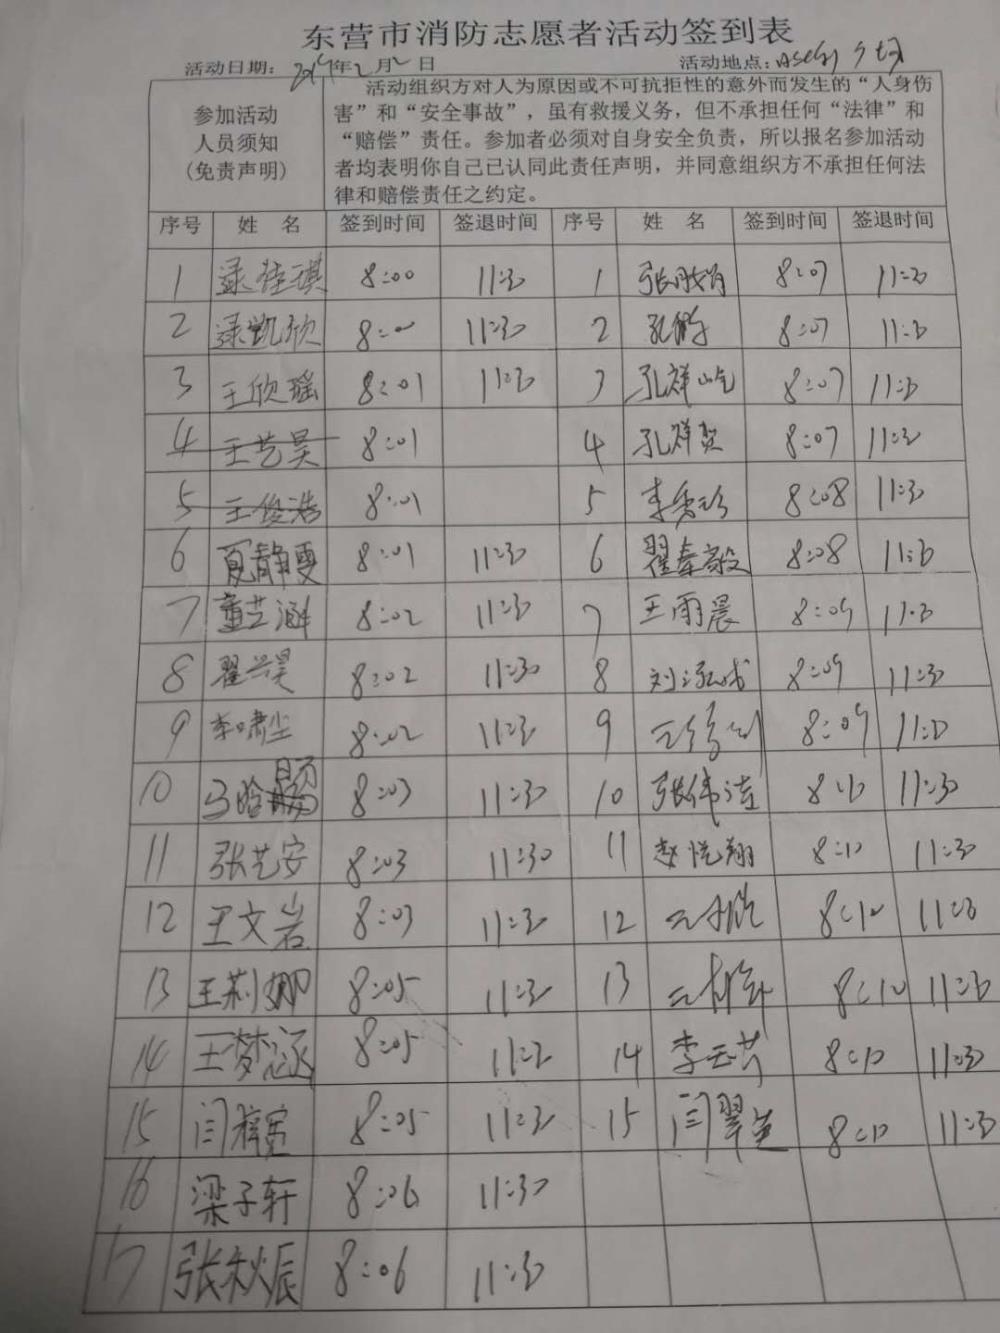 东营市消防志愿者活动签到表
活动日期：2019年2月2日 活动地点：
参加活动
人员须知
(免责声明)
活动组织方对人为原因或不可抗拒性的意外而发生的“人身伤
害”和“安全事故”，虽有救援义务，但不承担任何“法律”和
“赔偿”责任。参加者必须对自身安全负责，所以报名参加活动
者均表明你自己已认同此责任声明，并同意组织方不承担任何法
律和赔偿责任之约定。
序号 姓 名 签到时间 签退时间 序号 姓 名 签到时间 签退时间
1 佳琪 8:00 11:30 1 张 8:07 11:30
2 凯欣 8:00 11:30 2 孔 8:07 11:30
3 王欣瑶 8:01 11:30 3 孔祥屹 8:07 11:30
4 王艺昊 8:01 4 孔祥贺 8:07 11:30
5 王俊浩 8:01 5 李秀珍 8:08 11:30
6 夏静雯 8:01 11:30 6 翟 8:08 11:30
7 董艺涵 8:02 11:30 7 王雨晨 8:09 11:30
8 翟兴昊 8:02 11:30 8 刘泓成 8:09 11:30
9 李啸尘 8:02 11:30 9 8:09 11:30
10 马晗 8:03 11:30 10 张伟洁 8:10 11:30
11 张艺安 8:03 11:30 11 赵悦翔 8:10 11:30
12 王文岩 8:03 11:30 12 8:10 11:30
13 王莉娜 8:05 11:30 13 8:10 11:30
14 王梦涵 8:05 11:30 14 李玉芹 8:10 11:30
15 闫梓宽 8:05 11:30 15 闫翠英 8:10 11:30
16 梁子轩 8:06 11:30
17 张秋辰 8:06 11:30